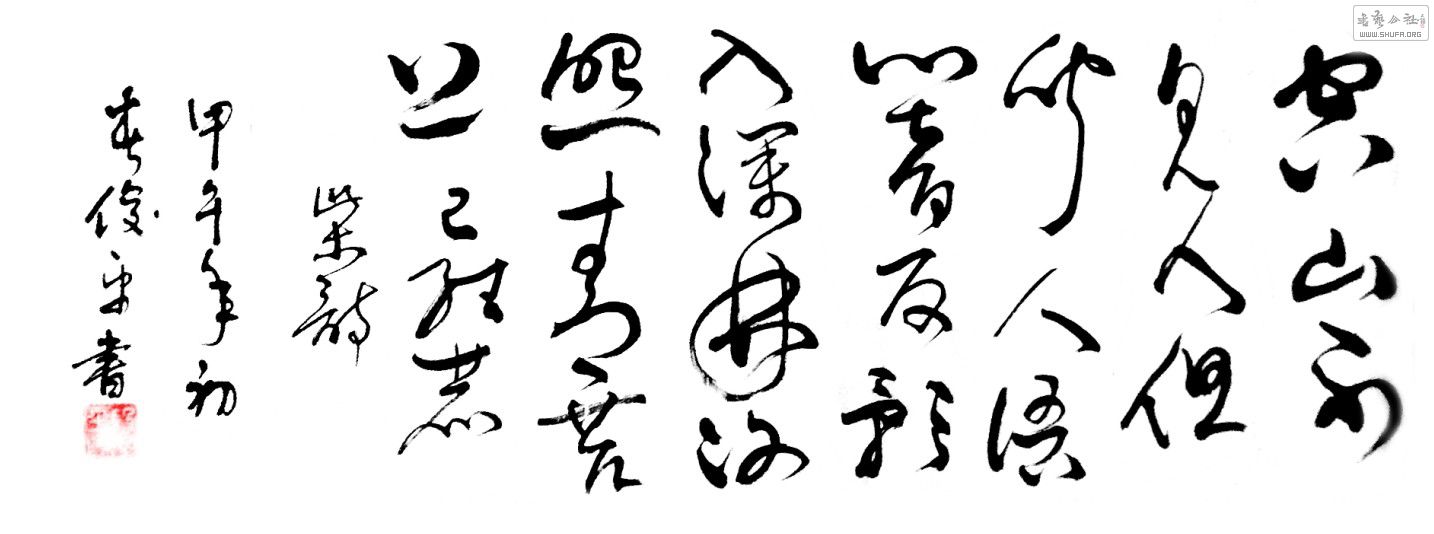 空山不
見人但
聞人語
響反影
入深林復
照青苔
上王維鹿
柴詩
甲午年初
俊平書
書藝公社
WWW.SHUFA.ORG